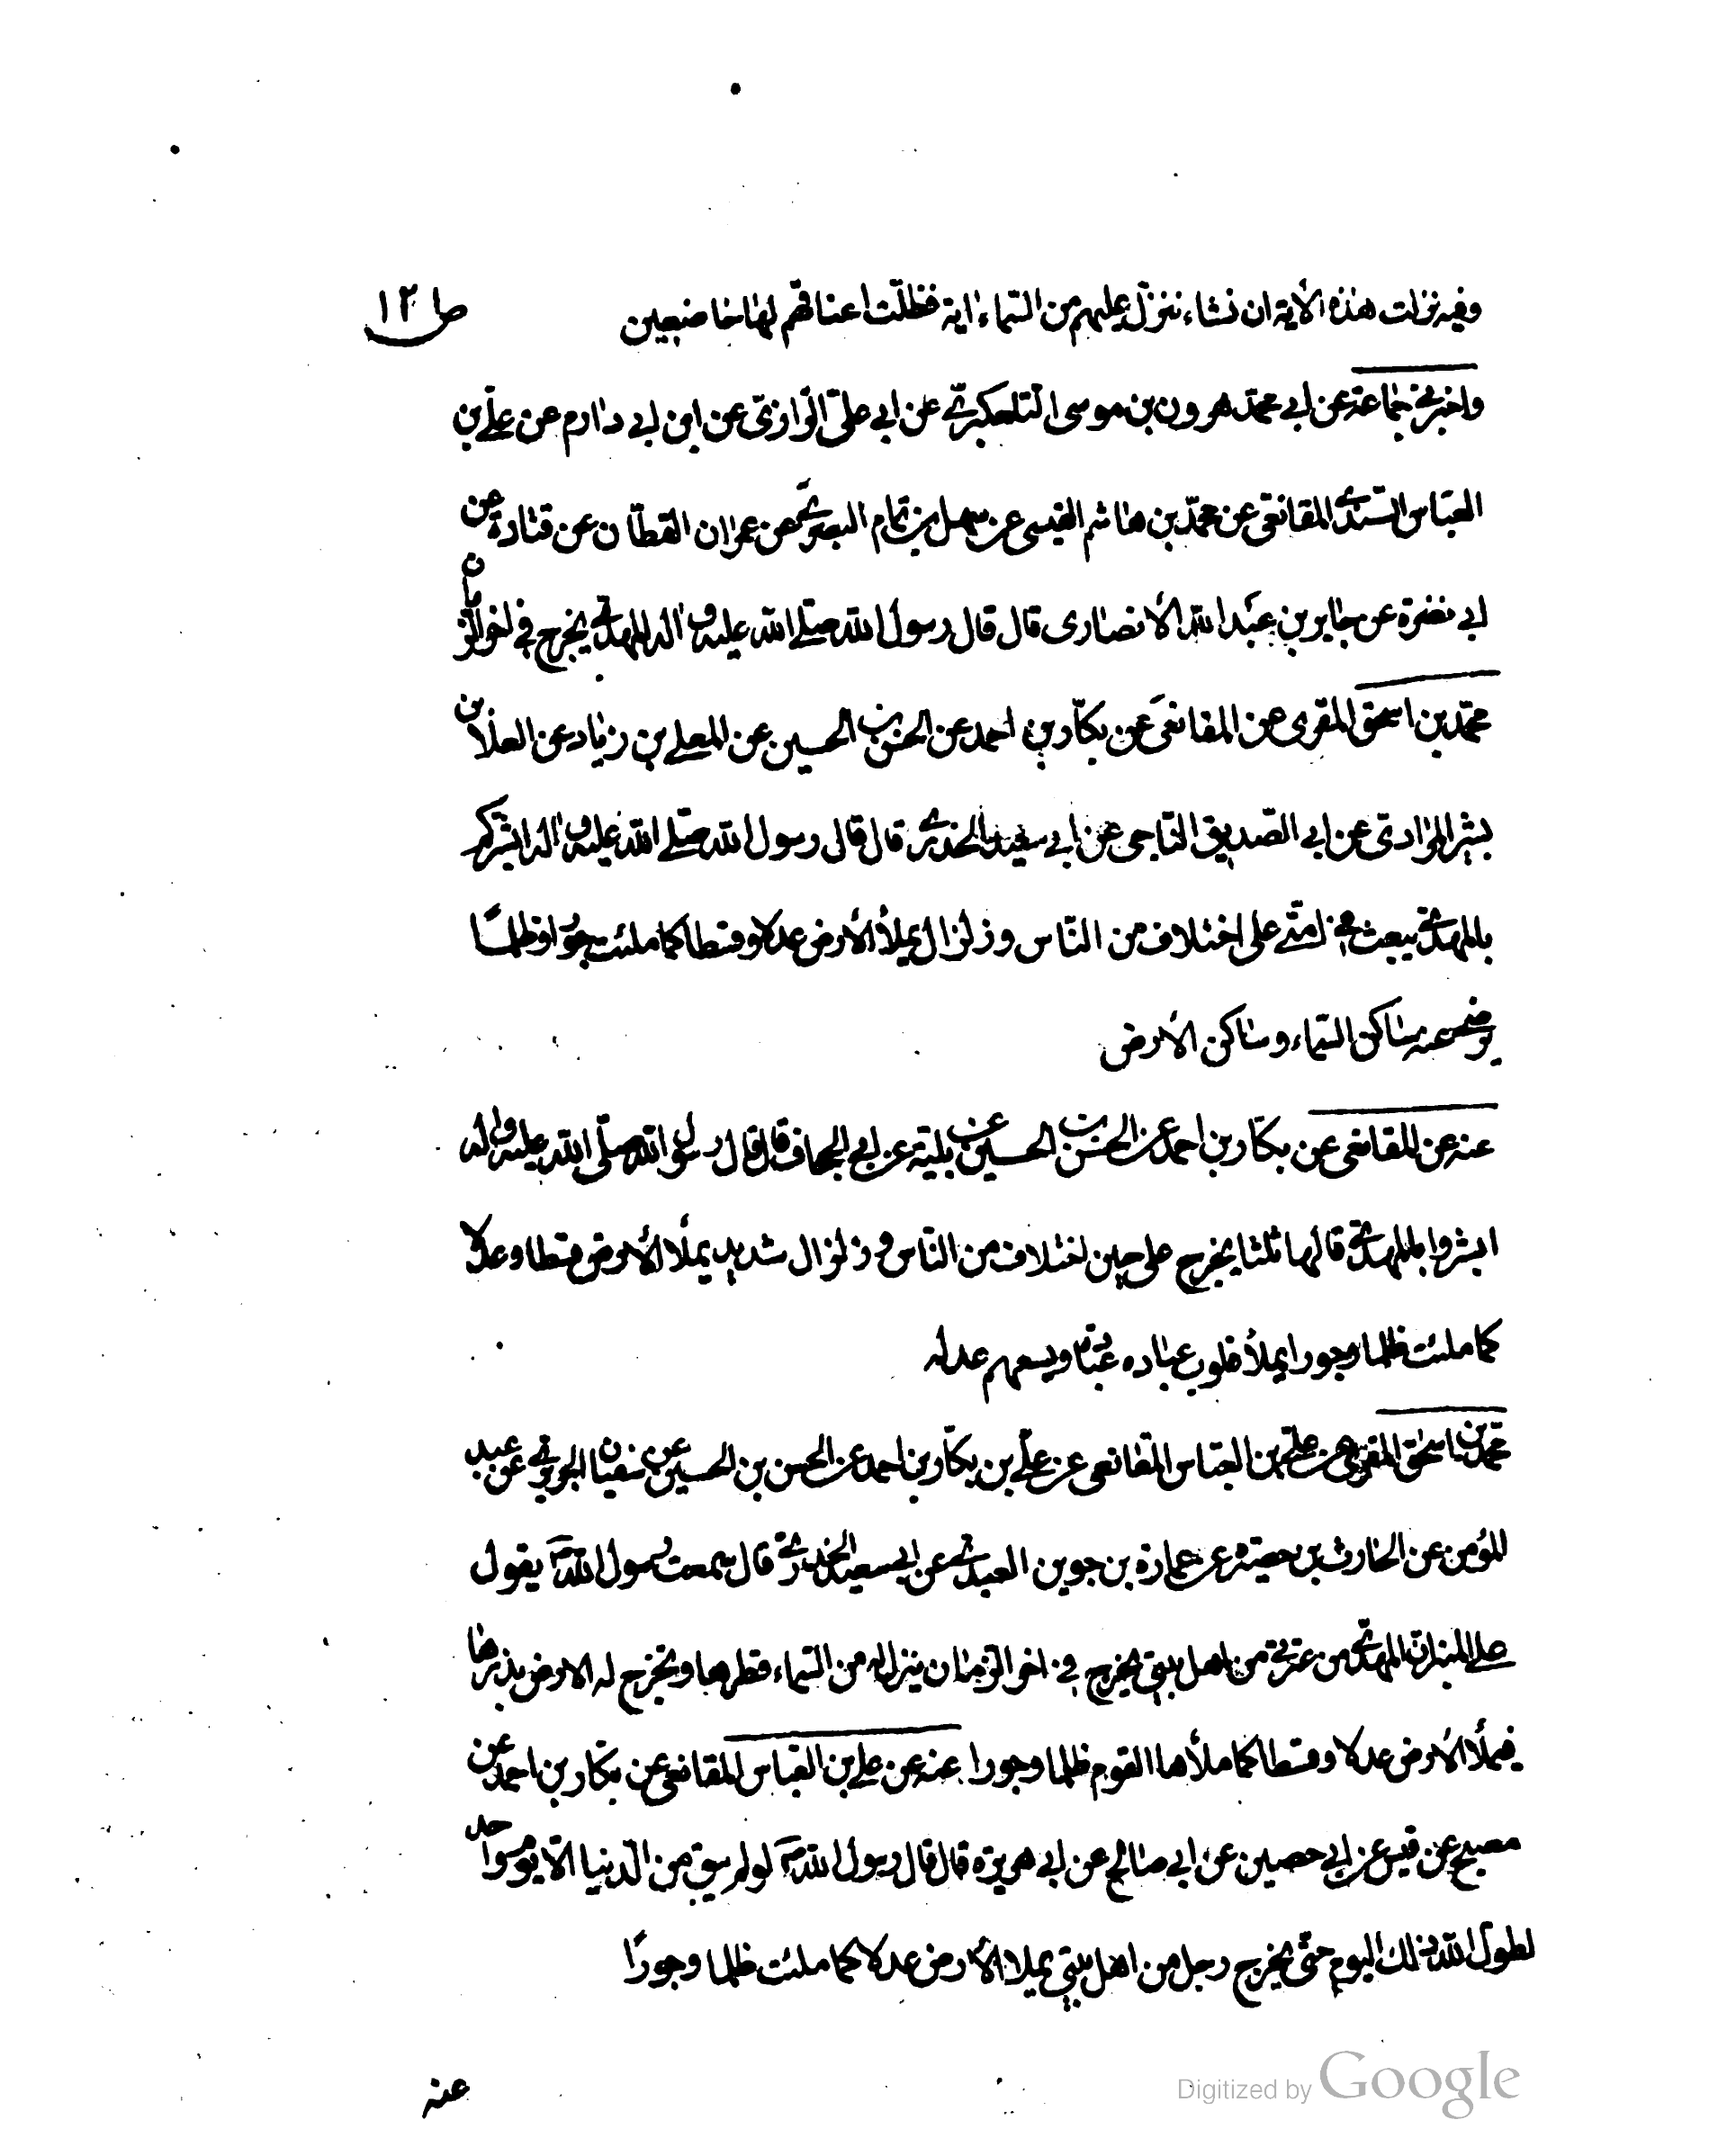 وفيه نزلت هذه الأية ان نشاء ننزل عليهم من السّماء اية فظلّت اعناقهم لها خاضعين
ص ١٢
واخبرني جماعة عن ابي محمّد هرون بن موسى التلعكبري عن ابي علي الرّازي عن ابن ابي دارم عن علي بن
العبّاس السّندي المقانعي عن محمّد بن هاشم القيسي عن سهل بن تمام البصري عن عمران القطّان عن قتادة عن
ابي نضرة عن جابر بن عبد الله الأنصاری قال قال رسول الله صلى الله عليه واله المهدي يخرج في اخر الزّمان
محمّد بن اسحق المقری عن المقانعي عن بكّار بن احمد عن الحسن بن الحسين عن المعلى بن زياد عن العلا بن
بشير المرادي عن ابي الصّديق النّاجي عن ابي سعيد الخدري قال قال رسول الله صلّى الله عليه واله ابشركم
بالمهدي يبعث في امّتي على اختلاف من النّاس وزلزال يملأ الأرض عدلا وقسطا كما ملئت جورا وظلمًا
يرضى عنه ساكن السّماء وساكن الأرض
عنه عن المقانعي عن بكّار بن احمد عن الحسن بن الحسين عن بلية عن ابي الجحاف قال قال رسول الله صلّى الله عليه واله
ابشروا بالمهدي قالها ثلثا يخرج على حين اختلاف من النّاس وزلزال شديد يملأ الأرض قسطا وعدلا
كما ملئت ظلما وجورا يملأ قلوب عباده عبادة ويسعهم عدله
محمّد بن اسحاق المقري عن علي بن العبّاس المقانعي عن علي بن بكّار بن احمد عن الحسن بن الحسين عن سفيان الجريري عن عبد
المؤمن عن الحارث بن حصيرة عن عمارة بن جوين العبدي عن ابي سعيد الخدري قال سمعت رسول الله ص يقول
على المنبر ان المهدي من عترتي من اهل بيتي يخرج في اخر الزمان ينزل له من السّماء قطرها وتخرج له الارض بذرها
فيملأ الأرض عدلا وقسطا كما ملأها القوم ظلما وجورا عنه عن علي بن العبّاس المقانعي عن بكّار بن احمد عن
مصبح عن قيس عن ابي حصين عن ابي صالح عن ابي هريرة قال قال رسول الله ص لو لم يبق من الدّنيا الّا يوم واحد
لطول الله ذلك اليوم حتّى يخرج رجل من اهل بيتي يملا الأرض عدلا كما ملئت ظلما وجورًا
عنه
Digitized by Google